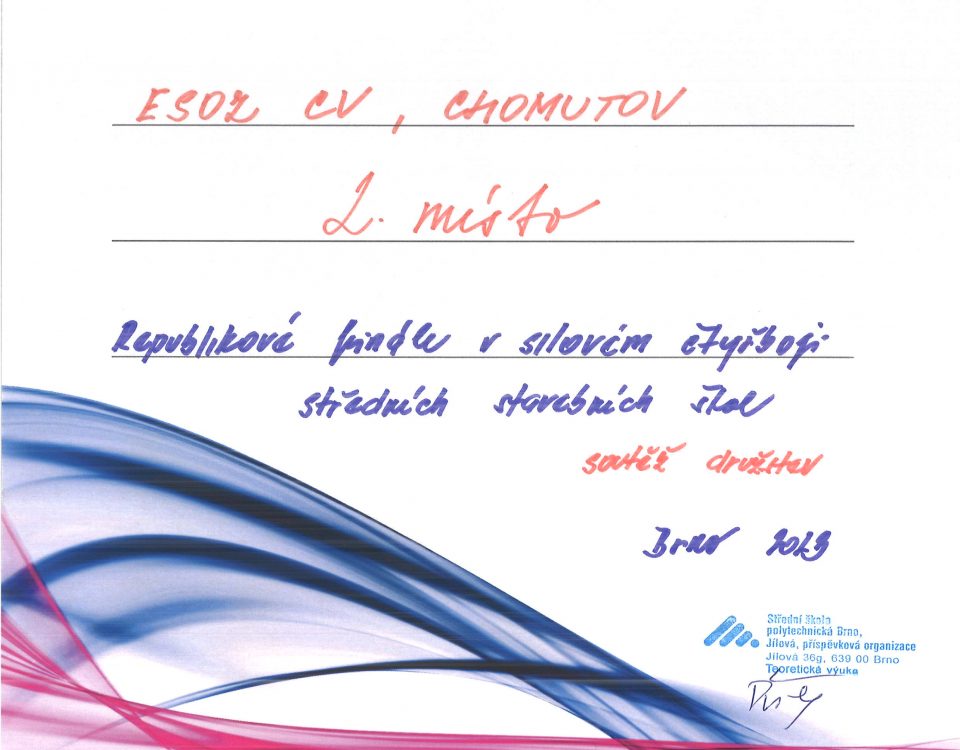 ESOZ CV, CHOMUTOV
2. místo
Republikové finále v silovém čtyřboji
středních stavebních škol
soutěž družstev
Brno 2013
Střední škola
polytechnická Brno,
Jílová, příspěvková organizace
Jílová 36g, 639 00 Brno
Teoretická výuka